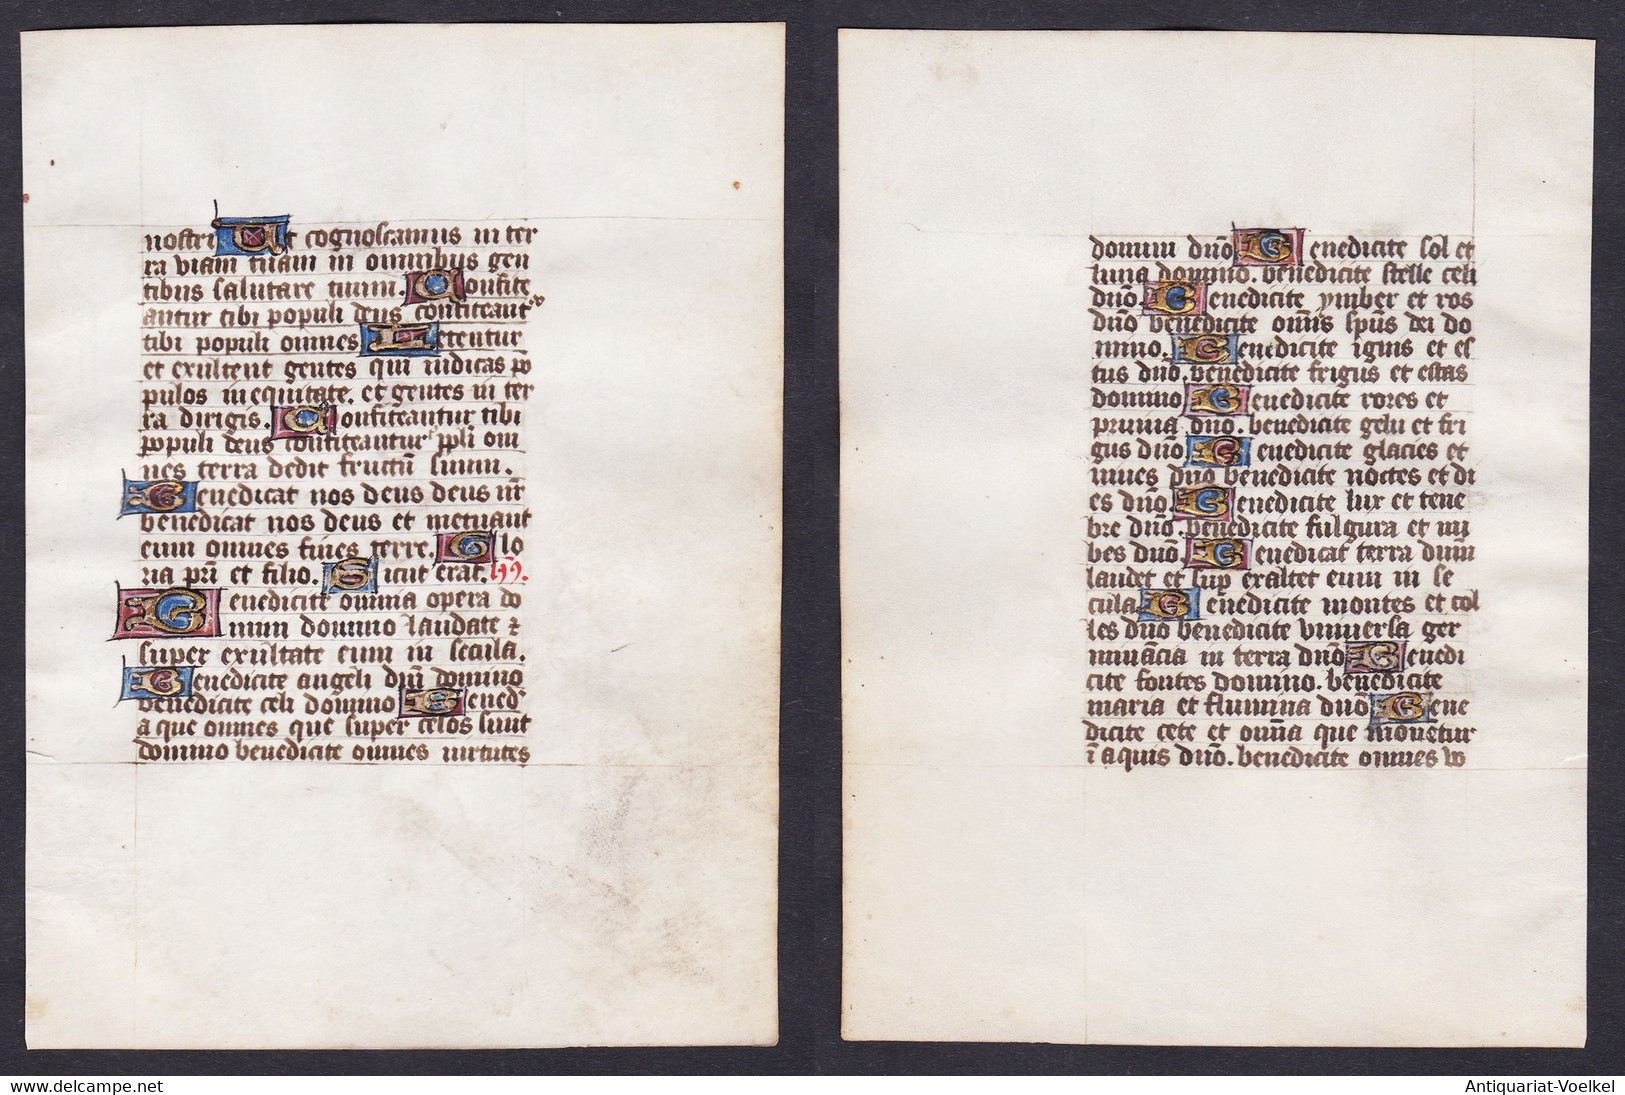 nostri Ut cognoscamus in ter
ra viam tuam in omnibus gen
tibus salutare tuum. Confite
antur tibi populi deus confiteant᷑
tibi populi omnes Letentur
et exultent gentes qui iudicas po
pulos in equitate. et gentes in ter
ra dirigis. Confiteantur tibi
populi deus confiteantur ppli om
nes terra dedit fructū suum.
Benedicat nos deus deus nr̄
benedicat nos deus et metuant
eum omnes fines terre. Glo
ria pri et filio. Sicut erat.
Benedicite omnia opera do
mini domino laudate et
super exultate eum in secula.
Benedicite angeli dni domino
benedicite celi domino Bened
a que omnes que super celos sunt
domino benedicite omnes virtutes
domini dn̄o Benedicite sol et
luna domino. benedicite stelle celi
dn̄o Benedicite ymber et ros
dn̄o benedicite om̄is sp̄us dei do
mino. Benedicite ignis et es
tus dn̄o. benedicite frigus et estas
domino Benedicite rores et
pruina dn̄o. benedicite gelu et fri
gus dn̄o. Benedicite glacies et
niues dn̄o benedicite noctes et di
es dn̄o. Benedicite lux et tene
bre dn̄o. benedicite fulgura et nu
bes dn̄o. Benedicat terra dnm
laudet et sup exaltet eum in se
cula. Benedicite montes et col
les dn̄o benedicite vniuersa ger
minācia in terra dn̄o Benedi
cite fontes domino. benedicite
maria et flumina dn̄o Bene
dicite cete et om̄ia que mouētur
ī aquis dn̄o. benedicite omnes vo
Antiquariat-Voelkel